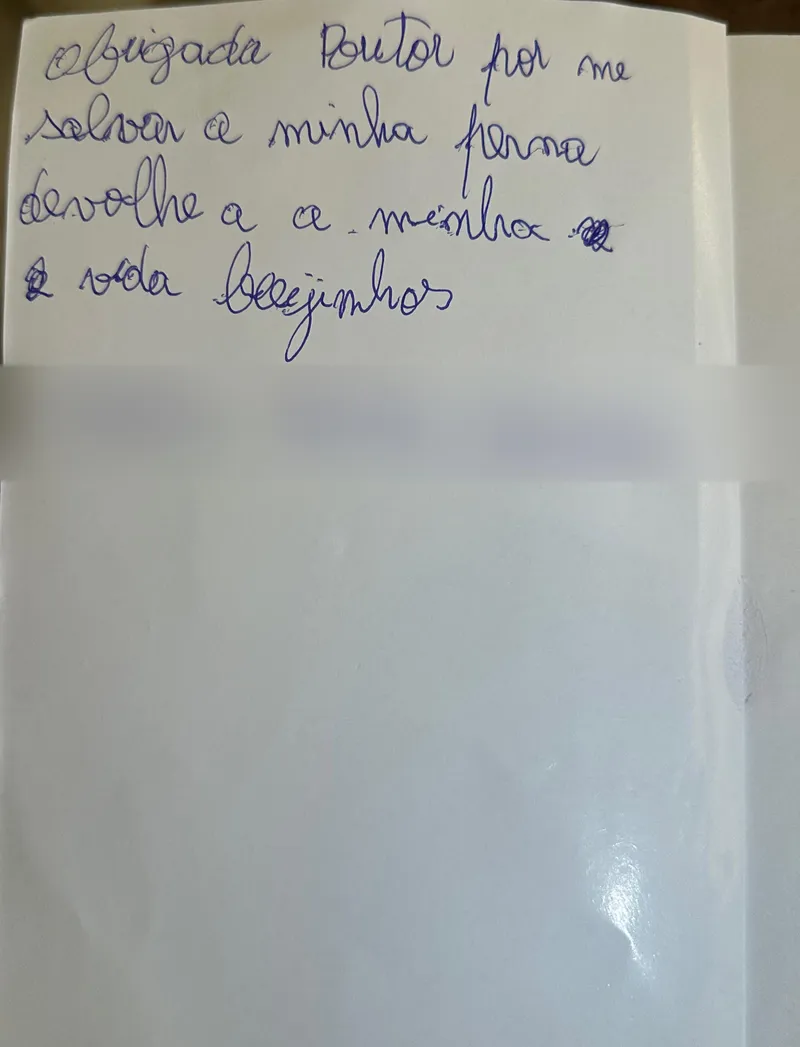 Obrigada Doutor por me
salvar a minha perna
devolhe a a minha
vida beijinhos